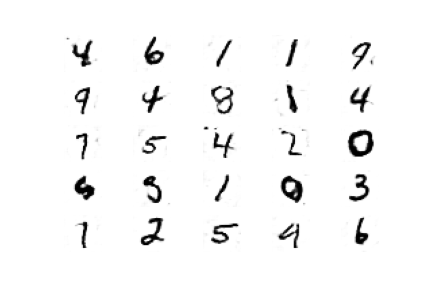 4 6 1 1 9
9 4 8 1 4
7 5 4 2 0
5 1 0 3
7 2 5 9 6